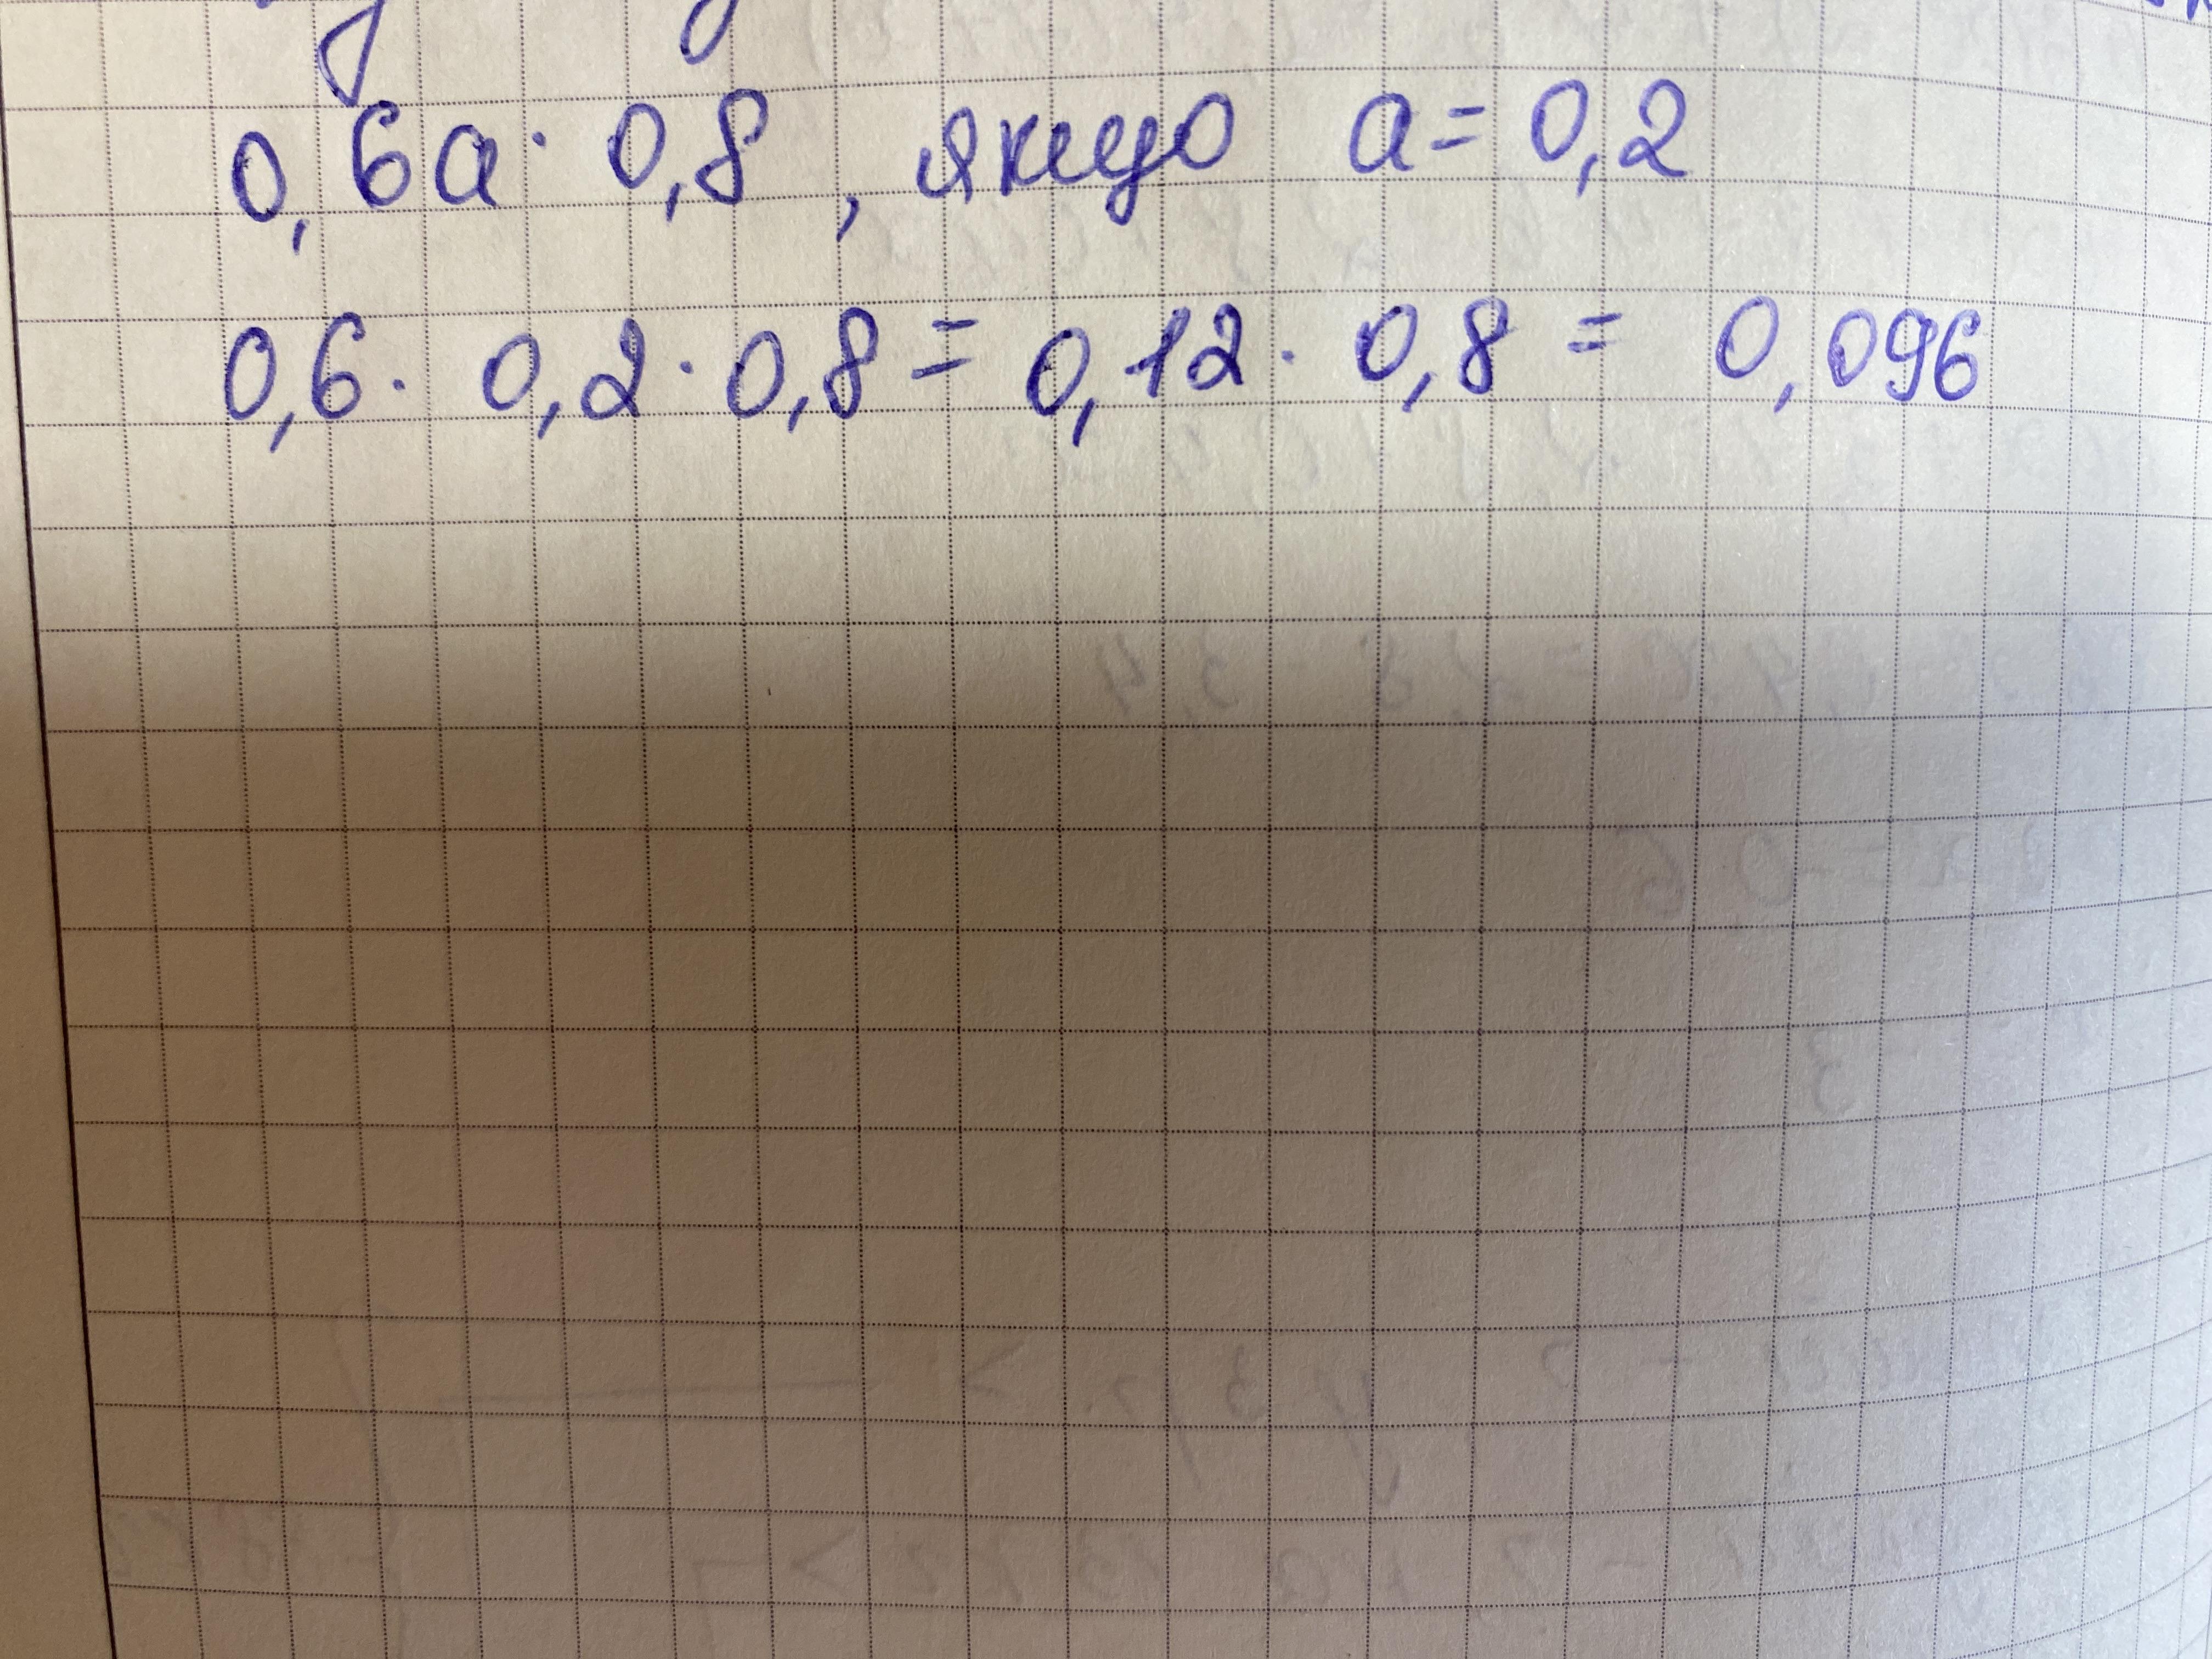 0,6a · 0,8, якщо a = 0,2
0,6 · 0,2 · 0,8 = 0,12 · 0,8 = 0,096